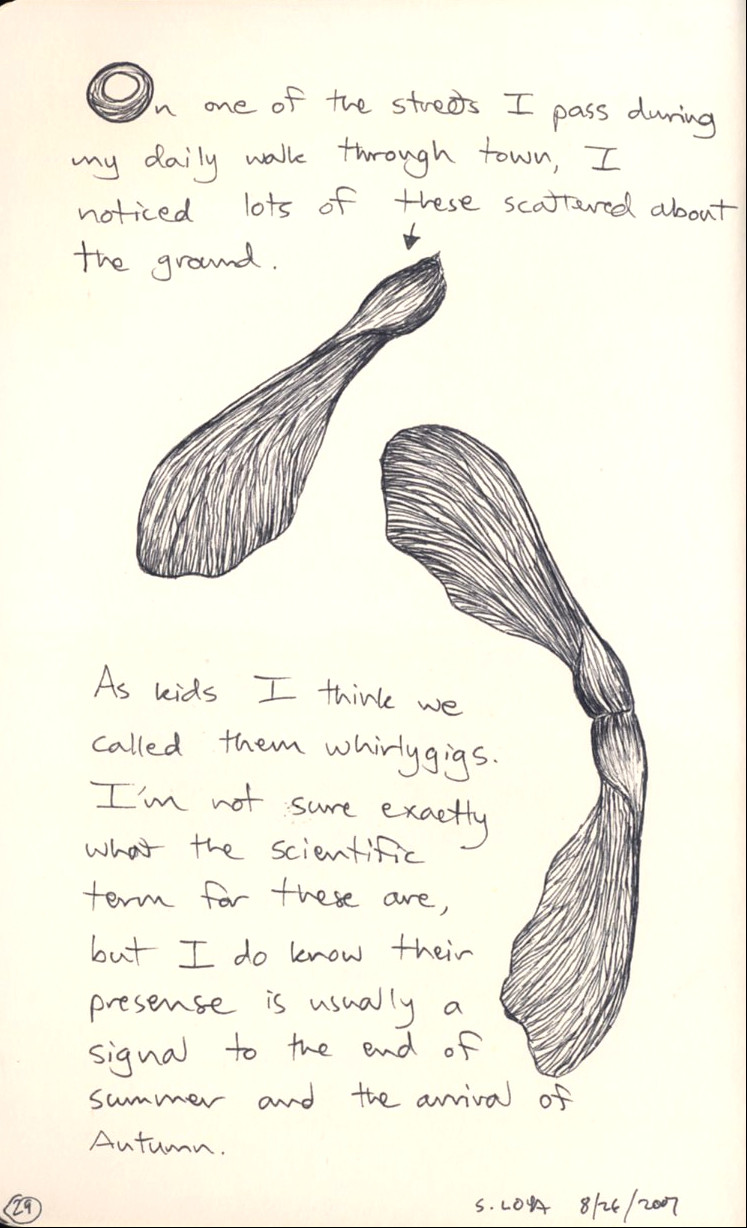 On one of the streets I pass during
my daily walk through town, I
noticed lots of these scattered about
the ground.
As kids I think we
called them whirlygigs.
I'm not sure exactly
what the scientific
term for these are,
but I do know their
presense is usually a
signal to the end of
summer and the arrival of
Autumn.
29
S. LOYA 8/26/2007